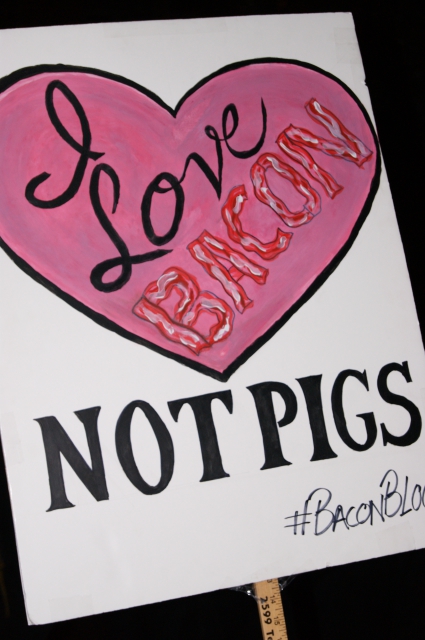 I Love
BACON
NOT PIGS
#BACONBLO
2599 To